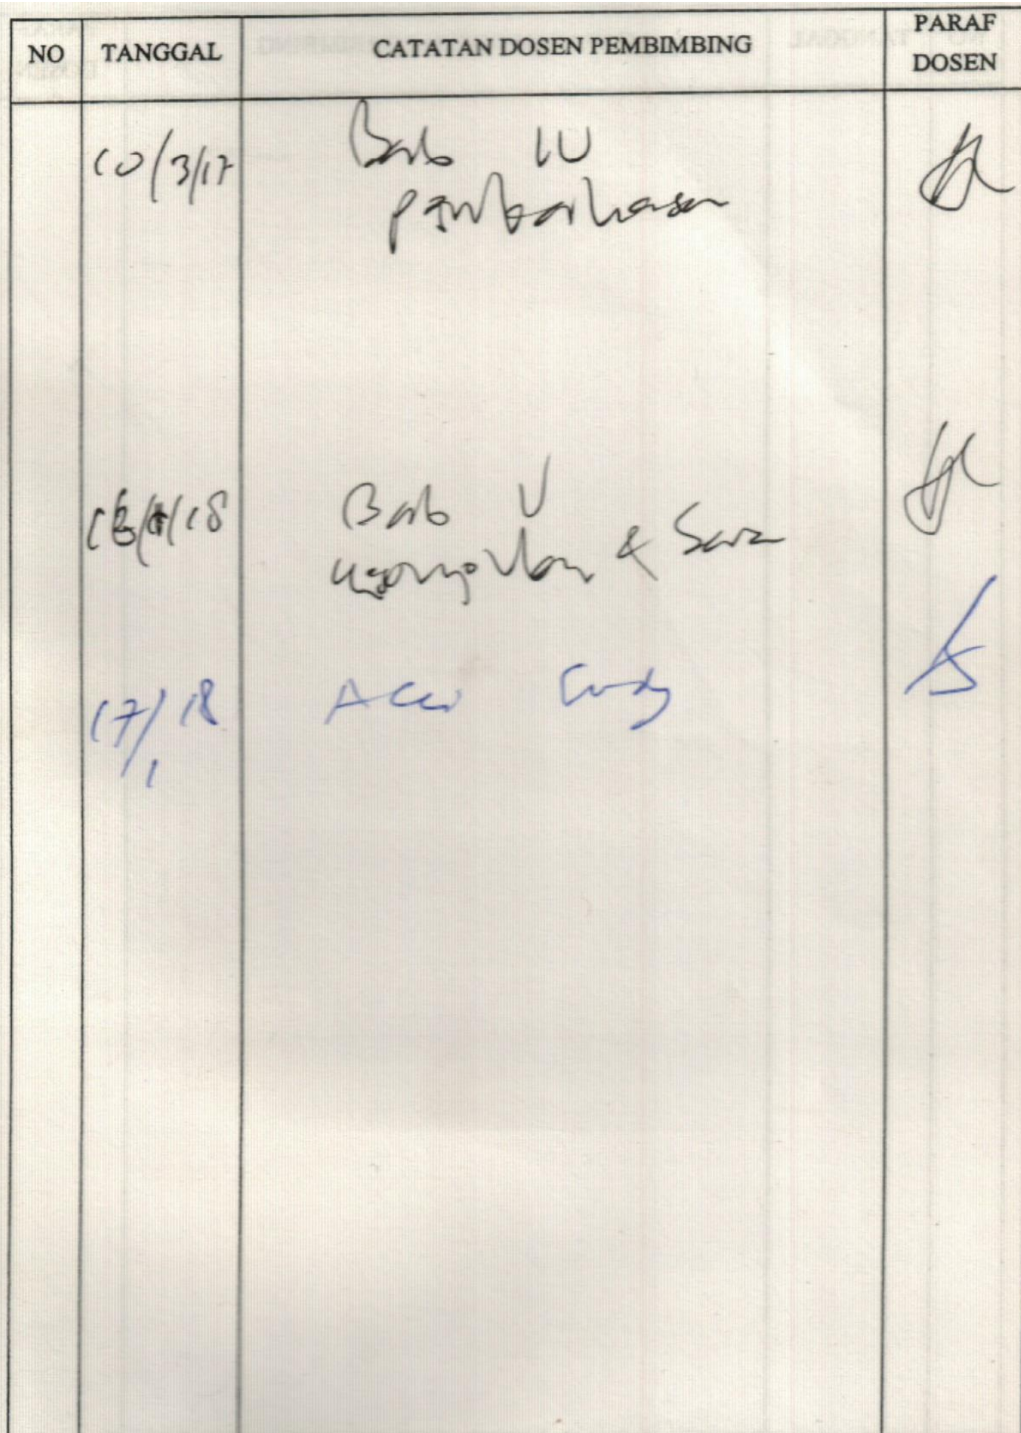 NO TANGGAL CATATAN DOSEN PEMBIMBING PARAF DOSEN
10/3/17 Bab IV
pembahasan
Bab V
& Saran
17/1 18 Acc